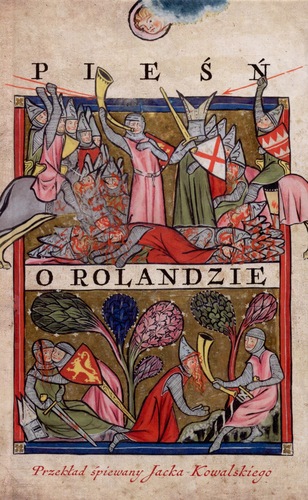 PIEŚŃ
O ROLANDZIE
Przekład śpiewany Jacka Kowalskiego